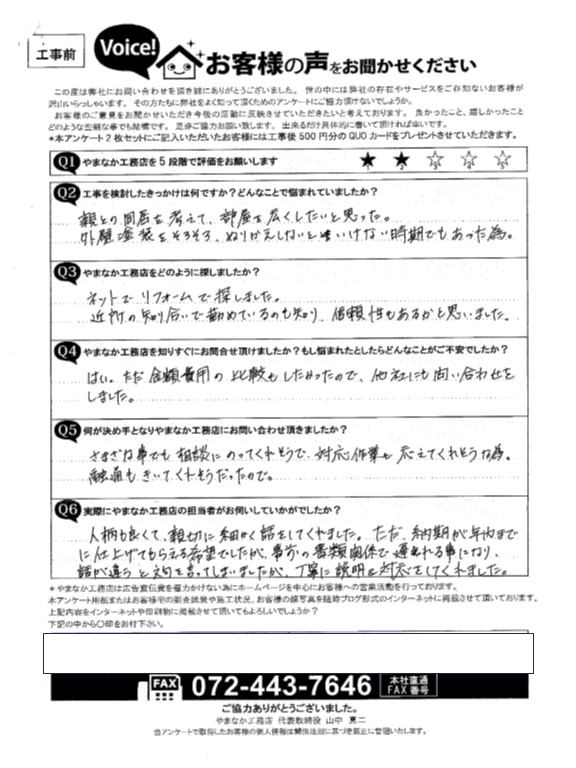 工事前
Voice!
お客様の声をお聞かせください
この度は弊社にお問い合わせを頂き誠にありがとうございました。 世の中には弊社の存在やサービスをご存知ないお客様が
沢山いらっしゃいます。 その方たちに弊社をよく知って頂くためのアンケートにご協力頂けないでしょうか。
お客様のご意見をお聞かせいただき今後の活動に反映させていただきたいと考えております。 良かったこと、嬉しかったこと
どのような些細な事でも結構です。 是非ご協力お願い致します。 出来るだけ具体的に書いて頂ければ幸いです。
*本アンケート2枚セットにご記入いただいたお客様には工事後500円分のQUOカードをプレゼントさせていただきます。
Q1 やまなか工務店を5段階で評価をお願いします ★1 ★2 ☆3 ☆4 ☆5
Q2 工事を検討したきっかけは何ですか?どんなことで悩まれていましたか?
親との同居を考えて、部屋を広くしたいと思った。
外壁塗装をそろそろ、ぬりかえしないといけない時期でもあった為。
Q3 やまなか工務店をどのように探しましたか?
ネットでリフォームで探しました。
近所の知り合いで勤めているのも知り、信頼性もあるかと思いました。
Q4 やまなか工務店を知りすぐにお問合せ頂けましたか?もし悩まれたとしたらどんなことがご不安でしたか?
はい。ただ金額費用の比較もしたかったので、他社にも問い合わせを
しました。
Q5 何が決め手となりやまなか工務店にお問い合わせ頂きましたか?
さまざな事でも相談にのってくれそうで、対応作業も応えてくれそうな為。
融通もきいてくれそうだったので。
Q6 実際にやまなか工務店の担当者がお伺いしていかがでしたか?
人柄も良くて、親切に細かく話をしてくれました。ただ、納期が年内まで
に仕上げてもらえる希望でしたが、事前の書類関係で遅れる事になり、
話が違うと文句を言ってしまいましたが、丁寧に説明&対応をしてくれました。
*やまなか工務店は広告宣伝費を極力かけない為にホームページを中心にお客様への営業活動を行っております。
本アンケート用紙またはお客様宅の調査風景や施工状況、お客様の顔写真を随時ブログ形式のインターネットに掲載させて頂いております。
上記内容をインターネットや印刷物に掲載させて頂いてもよろしいでしょうか?
下記の中から〇印をお付下さい。
FAX 072-443-7646 本社直通
FAX番号
ご協力ありがとうございました。
やまなか工務店 代表取締役 山中
当アンケートで取得したお客様の個人情報は関係法規に基づき厳正に管理いたします。